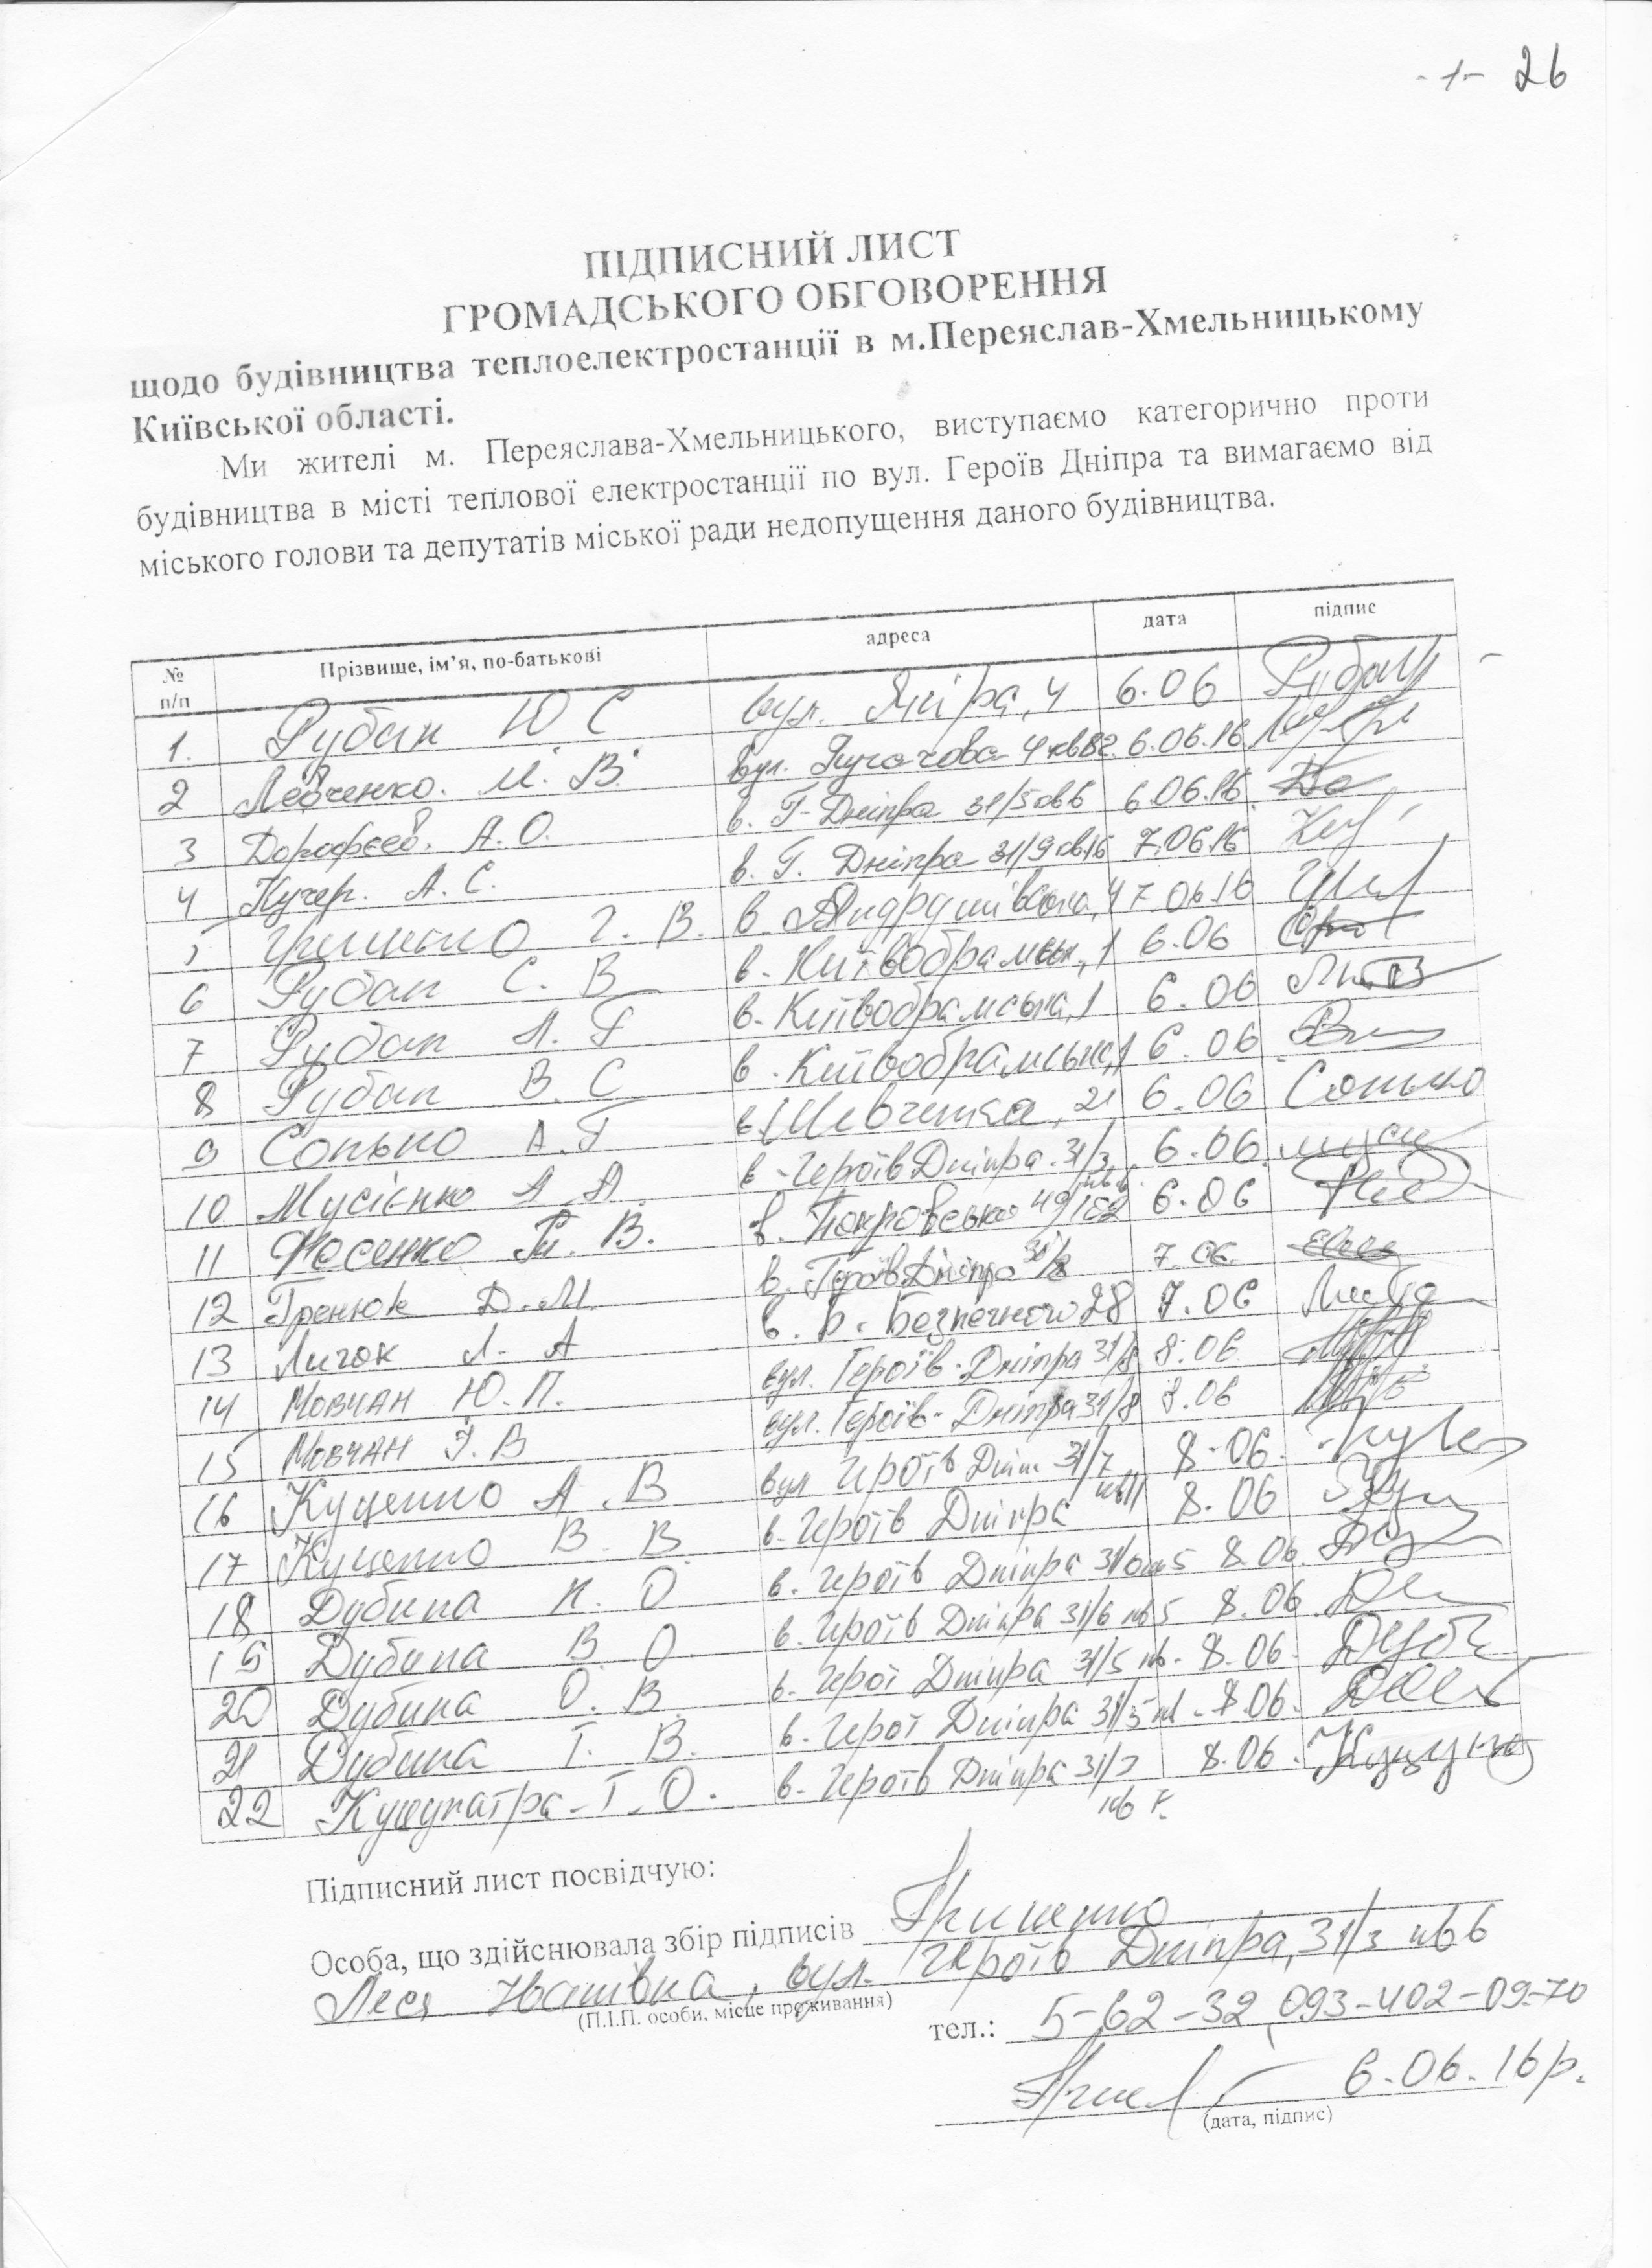 -1- 26
ПІДПИСНИЙ ЛИСТ
ГРОМАДСЬКОГО ОБГОВОРЕННЯ
щодо будівництва теплоелектростанції в м.Переяслав-Хмельницькому
Київської області.
Ми жителі м. Переяслава-Хмельницького, виступаємо категорично проти
будівництва в місті теплової електростанції по вул. Героїв Дніпра та вимагаємо від
міського голови та депутатів міської ради недопущення даного будівництва.
№ п/п Прізвище, ім’я, по-батькові адреса дата підпис
1. Рубан Ю С вул. 4 6.06 Рубан
2 Левченко. М. В. вул. 4 кв82. 6.06.16
3 Дорофєєв. А. О. в. Г. Дніпра 31/5 кв6 6.06.16
4 Кучер. А. С. в. Г. Дніпра 31/9 кв16 7.06.16
5 Г. В. в. 4 7.06.16
6 Рубан С. В в. Київобрамськ., 1 6.06
7 Рубан Л. Г в. Київобрамська, 1 6.06
8 Рубан В. С в. Київобрамська, 1 6.06
9 Сонько А. Г в. Шевченка, 21 6.06 Сонько
10 Мусієнко А А. в. Героїв Дніпра. 31/3 6.06.
11 Носенко В. в. Покровська 49/ 6.06
12 Гренюк Д. М. в. Героїв Дніпра 31/8 7.06
13 Личок Л. А в. Б. Безпечного 28 7.06
14 Мовчан Ю. П. вул. Героїв Дніпра 31/8 8.06
15 Мовчан І. В вул. Героїв Дніпра 31/8 8.06
16 Куценко А. В вул Героїв Дніп 31/7 8.06.
17 Куценко В. В. в. Героїв Дніпра кв11 8.06
18 Дубина К. О в. Героїв Дніпра 31/6 кв5 8.06.
19 Дубина В. О. в. Героїв Дніпра 31/6 кв5 8.06.
20 Дубина О. В. в. Герої Дніпра 31/5 кв. 8.06.
21 Дубина Т. В. в. Герої Дніпра 31/5 8.06.
22 Т. О. в. Героїв Дніпра 31/3 8.06.
Підписний лист посвідчую:
Особа, що здійснювала збір підписів
Леся Іванівна, вул. Героїв Дніпра, 31/3 кв6
(П.І.П. особи, місце проживання)
тел.: 5-62-32, 093-402-09-70
6.06.16р.
(дата, підпис)